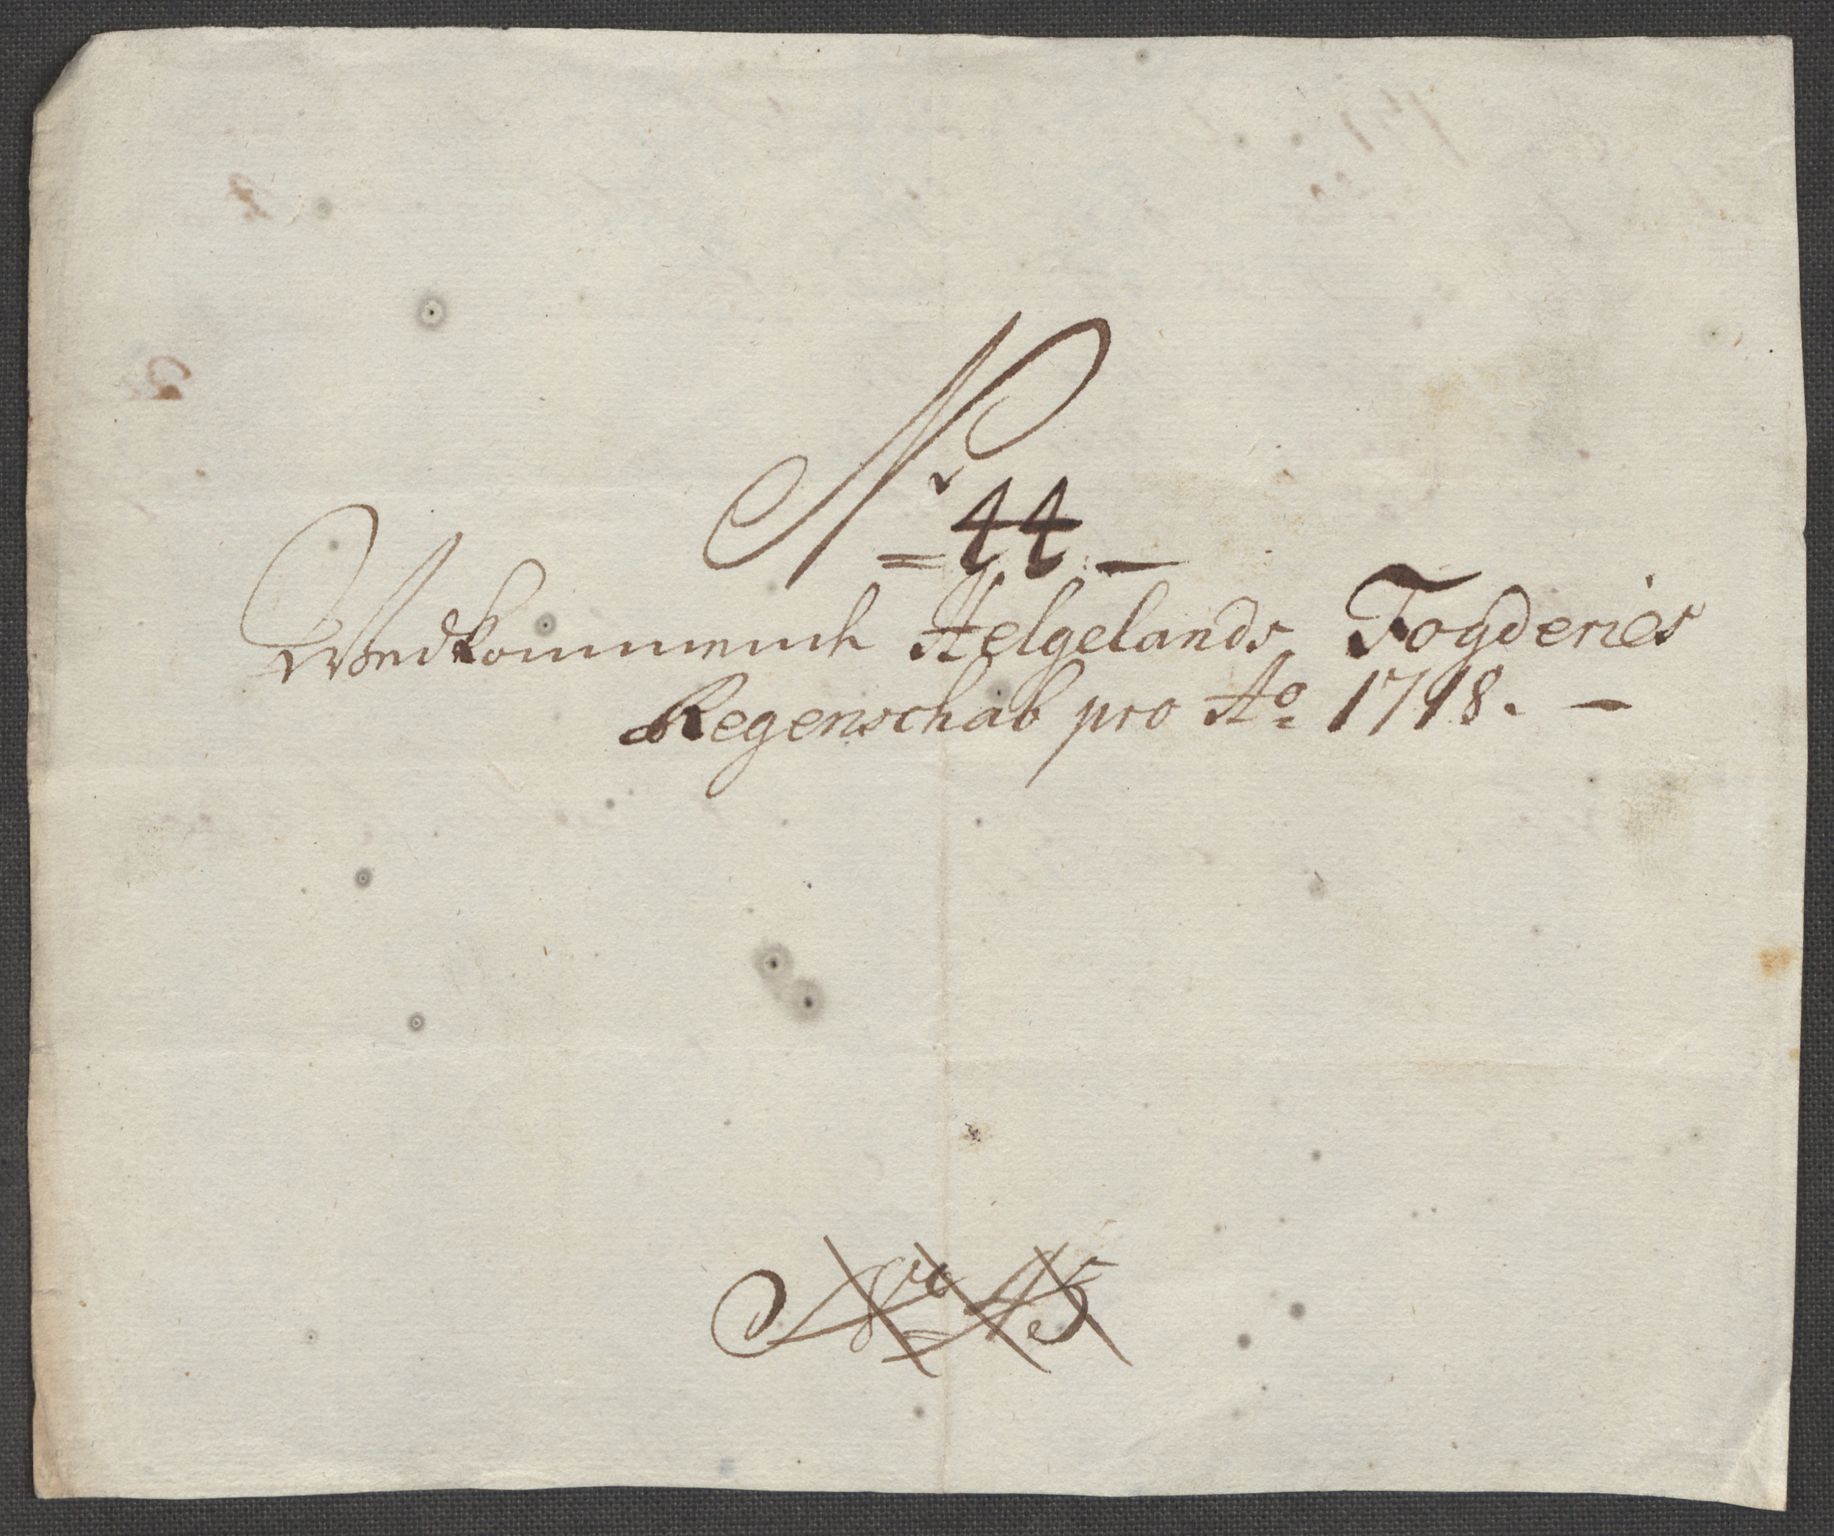 Nr
=44–
Wedkommende Helgelands Fogderies
Regenschab pro Ao 1718. –
No 45